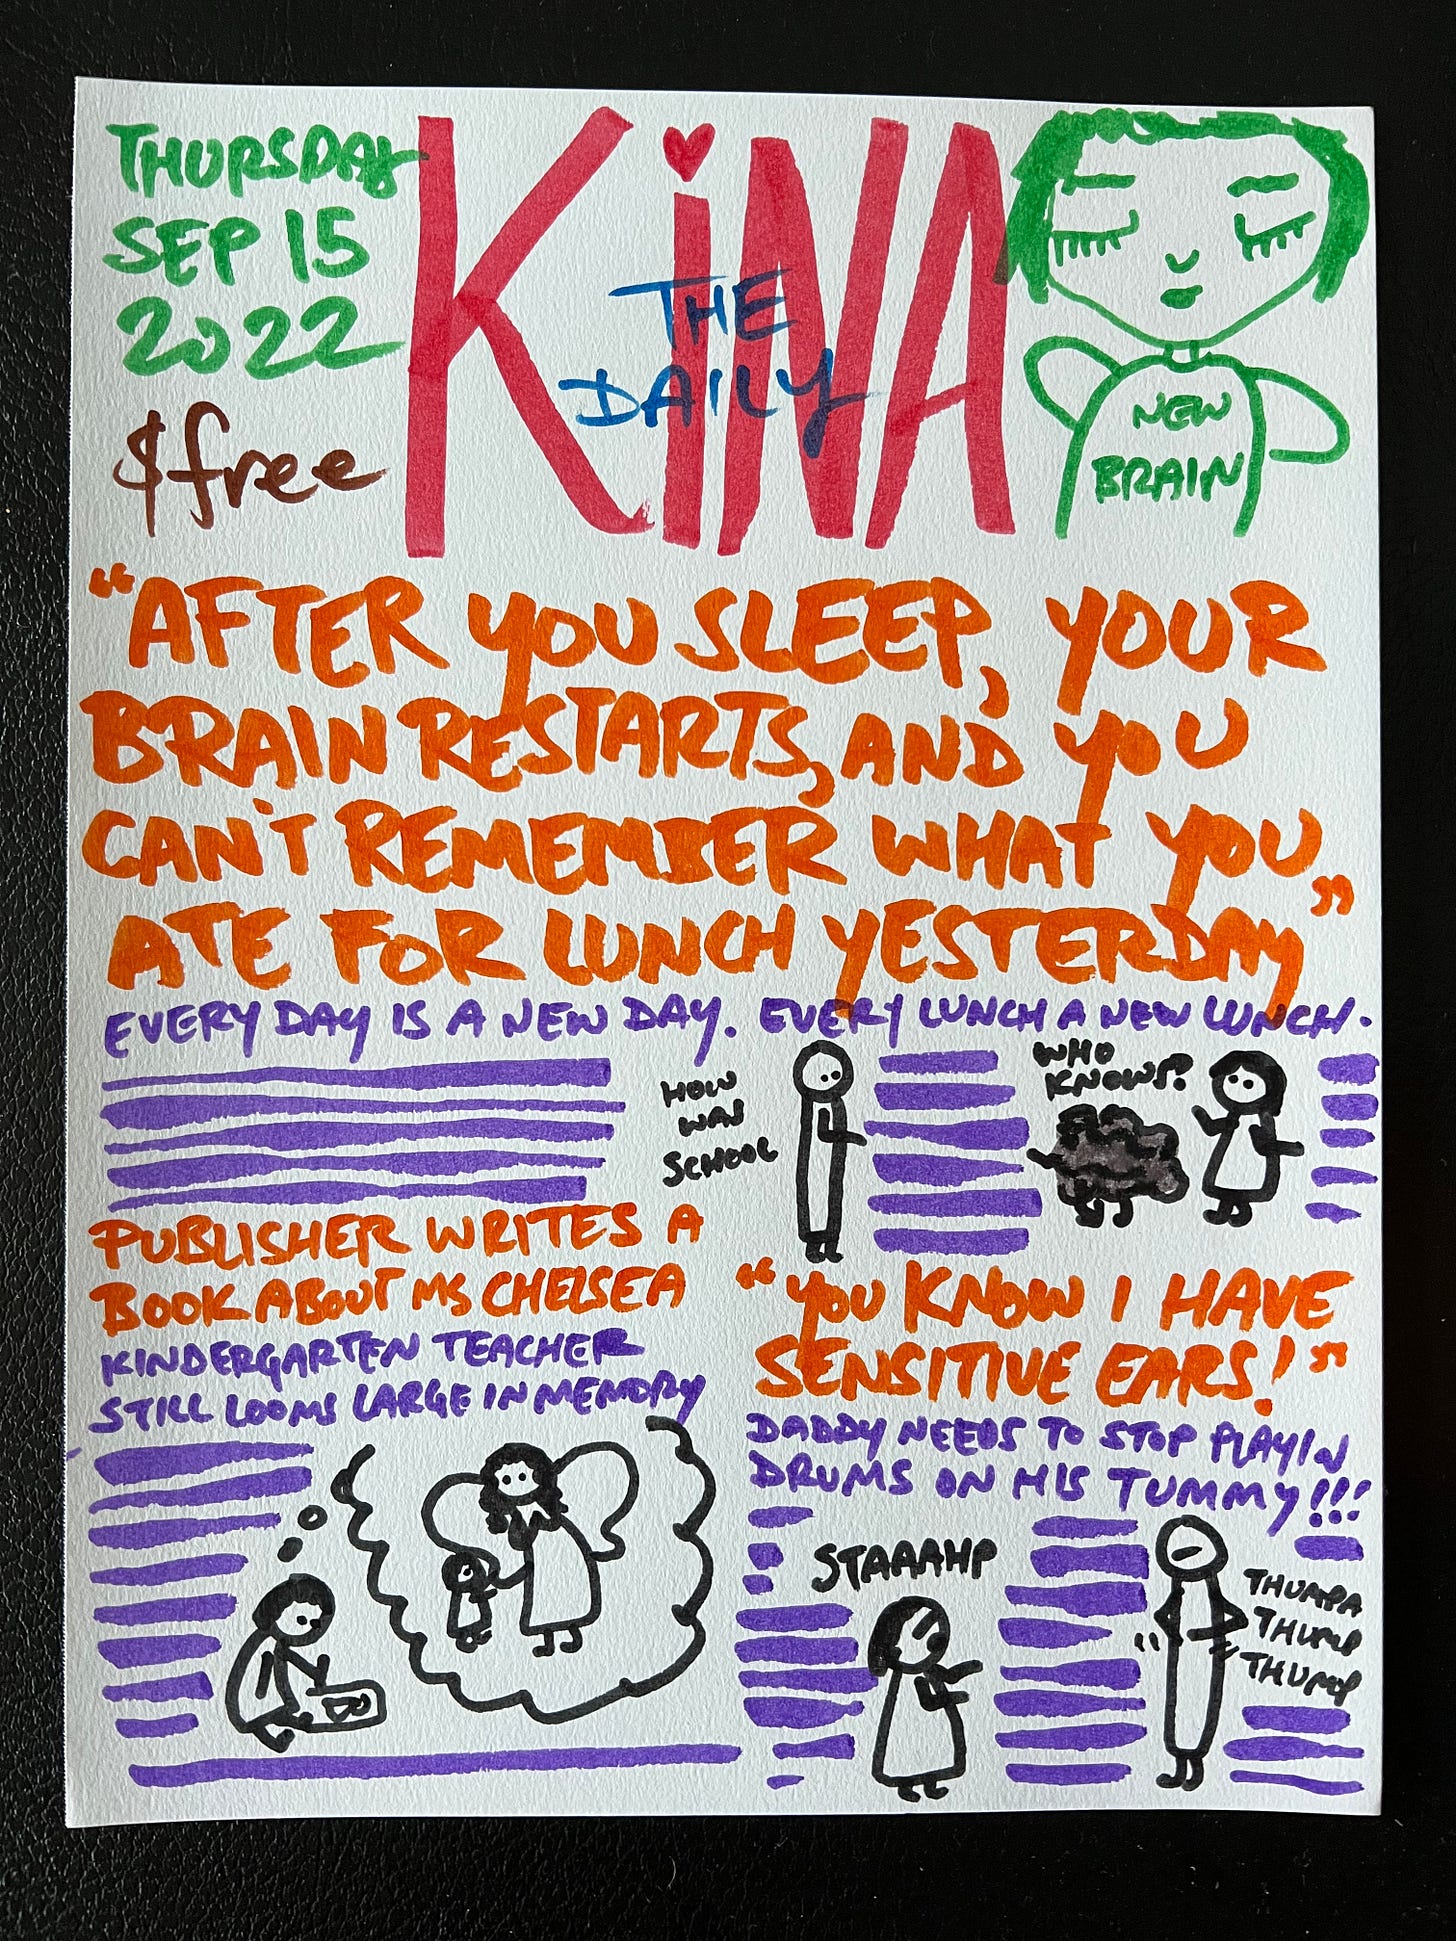 THURSDAY
SEP 15
2022
$free
KiNA
THE
DAILY
NEW
BRAIN
"AFTER YOU SLEEP, YOUR
BRAIN RESTARTS, AND YOU
CAN'T REMEMBER WHAT YOU
ATE FOR LUNCH YESTERDAY"
EVERY DAY IS A NEW DAY. EVERY LUNCH A NEW LUNCH.
HOW
WAS
SCHOOL
WHO
KNOWS?
PUBLISHER WRITES A
BOOK ABOUT MS CHELSEA
KINDERGARTEN TEACHER
STILL LOOMS LARGE IN MEMORY
"YOU KNOW I HAVE
SENSITIVE EARS!"
DADDY NEEDS TO STOP PLAYIN
DRUMS ON HIS TUMMY!!!
STAAAHP
THUMPA
THUMP
THUMP